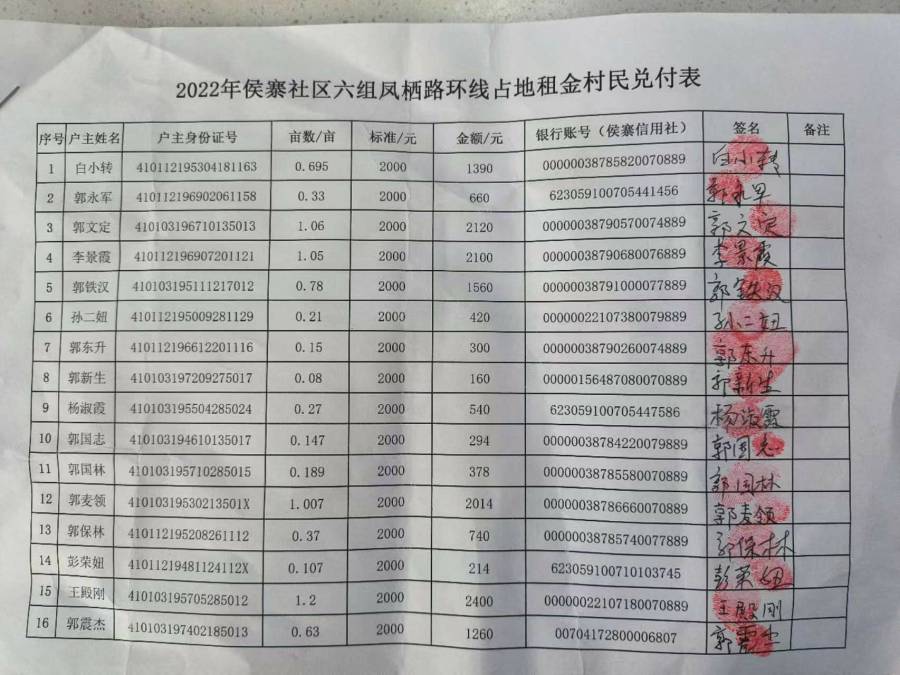 2022年侯寨社区六组凤栖路环线占地租金村民兑付表
序号 户主姓名 户主身份证号 亩数/亩 标准/元 金额/元 银行账号（侯寨信用社） 签名 备注
1 白小转 410112195304181163 0.695 2000 1390 00000038785820070889 白小转
2 郭永军 410112196902061158 0.33 2000 660 623059100705441456 郭永军
3 郭文定 410103196710135013 1.06 2000 2120 00000038790570074889 郭文定
4 李景霞 410112196907201121 1.05 2000 2100 00000038790680076889 李景霞
5 郭铁汉 410103195111217012 0.78 2000 1560 00000038791000077889 郭铁汉
6 孙二妞 410112195009281129 0.21 2000 420 00000022107380079889 孙二妞
7 郭东升 410112196612201116 0.15 2000 300 00000038790260074889 郭东升
8 郭新生 410103197209275017 0.08 2000 160 00000156487080070889 郭新生
9 杨淑霞 410103195504285024 0.27 2000 540 623059100705447586 杨淑霞
10 郭国志 410103194610135017 0.147 2000 294 00000038784220079889 郭国志
11 郭国林 410103195710285015 0.189 2000 378 00000038785580070889 郭国林
12 郭麦领 41010319530213501X 1.007 2000 2014 00000038786660070889 郭麦领
13 郭保林 410112195208261112 0.37 2000 740 00000038785740077889 郭保林
14 彭荣妞 41011219481124112X 0.107 2000 214 623059100710103745 彭荣妞
15 王殿刚 410103195705285012 1.2 2000 2400 00000022107180070889 王殿刚
16 郭震杰 410103197402185013 0.63 2000 1260 00704172800006807 郭震杰